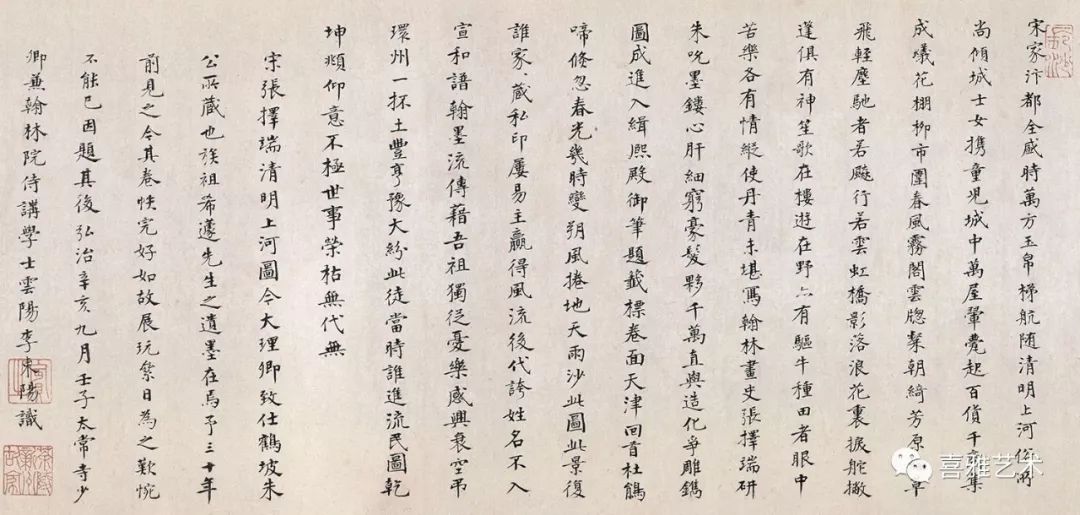 宋家汴都全盛時萬方玉帛梯航随清明上河俗所
尚傾城士女携童兒城中萬屋翬甍起百貨千
集
成蟻花棚柳市圍春風霧閣雲牕粲朝綺芳原
草
飛輕塵馳者若飈行若雲虹橋影落浪花裏捩舵撇
篷俱有神笙歌在樓遊在野亦有驅牛種田者眼中
苦樂各有情縱使丹青未堪寫翰林畫史張擇端研
朱吮墨鏤心肝細窮豪髮夥千萬直與造化爭雕鐫
圖成進入緝熙殿御筆題籤標卷面天津回首杜鵑
啼倏忽春光幾時變朔風捲地天雨沙此圖此景復
誰家家藏私印屢易主贏得風流後代誇姓名不入
宣和譜翰墨流傳藉吾祖獨從憂樂感興衰空弔
環州一抔土豐亨豫大紛此徒當時誰進流民圖乾
坤頫仰意不極世事榮枯無代無
宋張擇端清明上河圖今大理卿致仕鶴坡朱
公所藏也族祖希蘧先生之遺墨在焉予三十年
前見之今其卷帙完好如故展玩累日為之歎惋
不能已因題其後弘治辛亥九月壬子太常寺少
卿兼翰林院侍講學士雲陽李東陽識
喜雅艺术